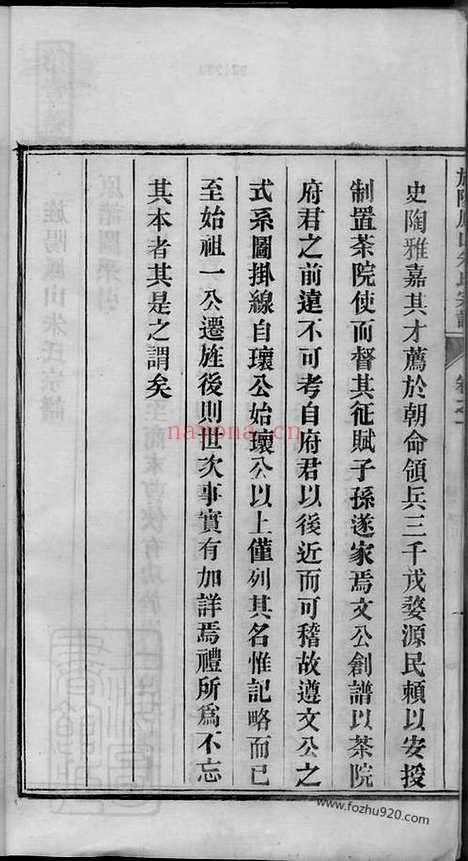 史陶雅嘉其才薦於朝命領兵三千戍婺源民賴以安授
制置茶院使而督其征賦子孫遂家焉文公創譜以茶院
府君之前遠不可考自府君以後近而可稽故遵文公之
式系圖掛線自瓌公始瓌公以上僅列其名惟記略而已
至始祖一公遷旌後則世次事實有加詳焉禮所爲不忘
其本者其是之謂矣
nayona.cn
www.fozhu920.com